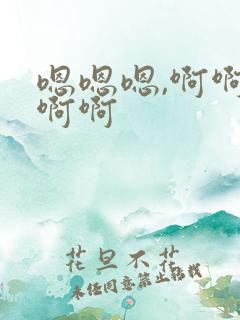 嗯嗯嗯,啊啊
啊啊
花旦不花
未经同意禁止转载